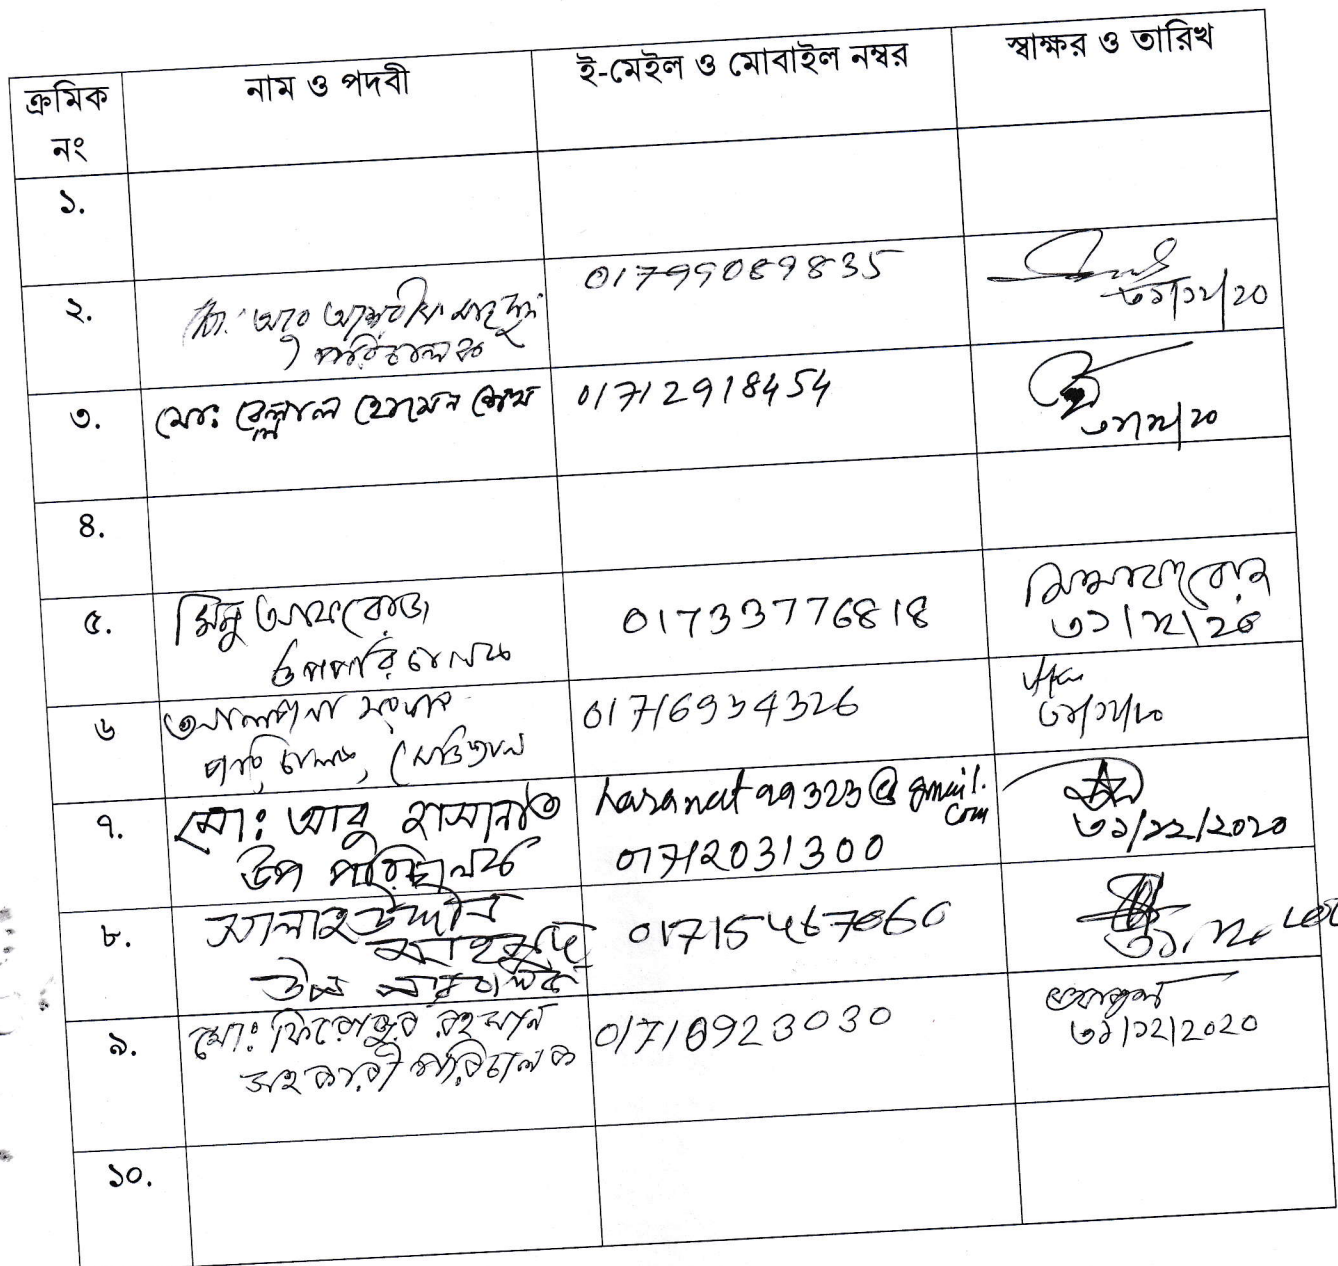 ক্রমিক নং
নাম ও পদবী
ই-মেইল ও মোবাইল নম্বর
স্বাক্ষর ও তারিখ
১.
২.
পরিচালক
01799089835
৩১/১২/20
৩.
মোঃ বেল্লাল হোসেন শেখ
01712918454
৩১/১২/20
৪.
৫.
মিনু আফরোজ
উপপরিচালক
01733776818
৩১/১২/20
৬
01716934326
৩১/১২/২০
৭.
মোঃ আবু হাসানাত
উপ পরিচালক
hasanat99323@gmail.
com
01712031300
৩১/১২/2020
৮.
সালাহউদ্দীন
মাহমুদ
উপ পরিচালক
01715467060
৯.
মোঃ ফিরোজুর রহমান
সহকারী পরিচালক
01710923030
৩১/১২/2020
১০.